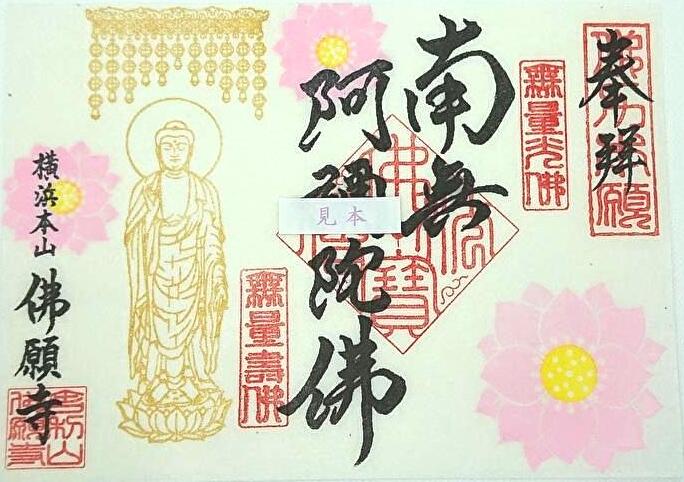 奉拝
無量光佛
南無
阿彌陀佛
見本
無量壽佛
横浜本山
佛願寺